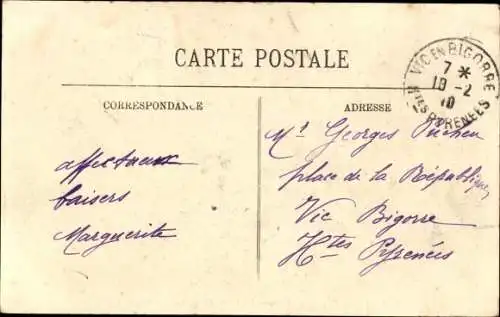 CARTE POSTALE
CORRESPONDANCE
ADRESSE
VIC EN BIGORRE
7 *
18 -2
10
Htes PYRENEES
affectueux
baisers
Marguerite
Mr Georges
place de la République
Vic Bigorre
Htes Pyrenées